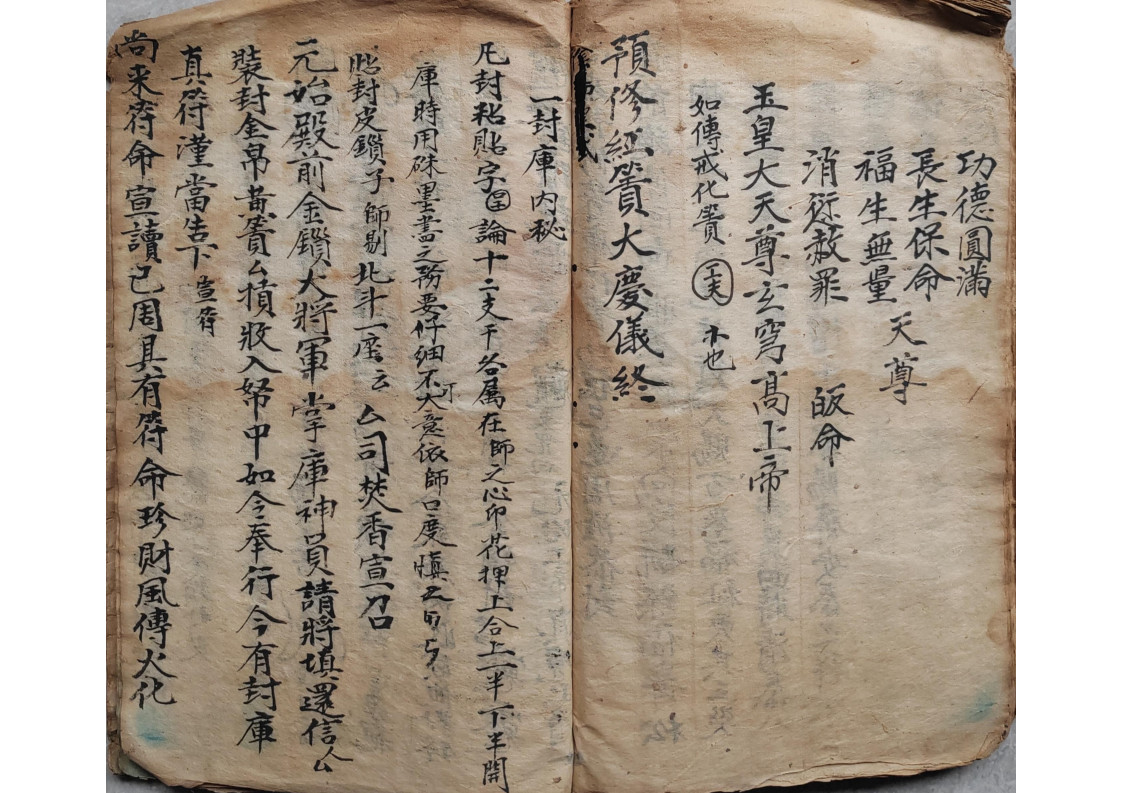 功德圓滿
長生保命
福生無量
天尊
消愆赦罪
皈命
玉皇大天尊玄穹高上帝
如傳戒化簀
也
預修紅簀大慶儀終
一封庫内秘
凡封粘貼字論十二支干各属在師之心印花押上合上一半下半開
庫時用硃墨畫之防要仔細不可大意依師口度慎之
貼封皮鎖子師剔北斗一座云厶司焚香宣召
元始殿前金鎖大將軍掌庫神員請將填還信人厶
裝封金帛黃簀厶積收入帑中如今奉行今有封庫
真符謹當告下宣符
尚来符命宣讀已周具有符命珍財風傳火化